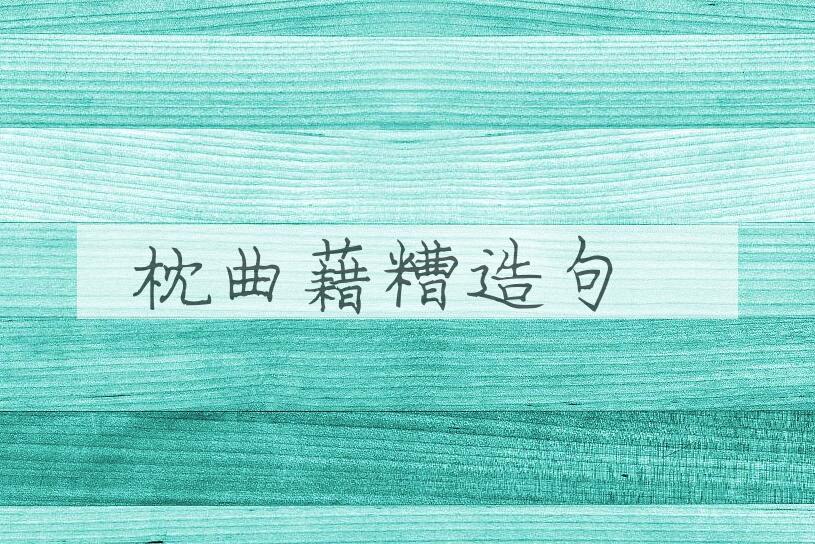 枕曲藉糟造句